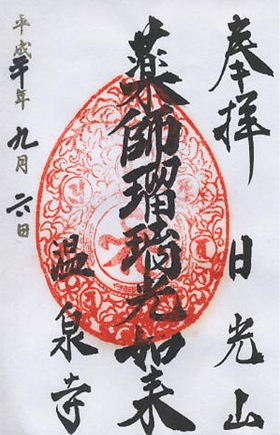 奉拝 日光山
薬師瑠璃光如来
温泉寺
平成二十年九月六日